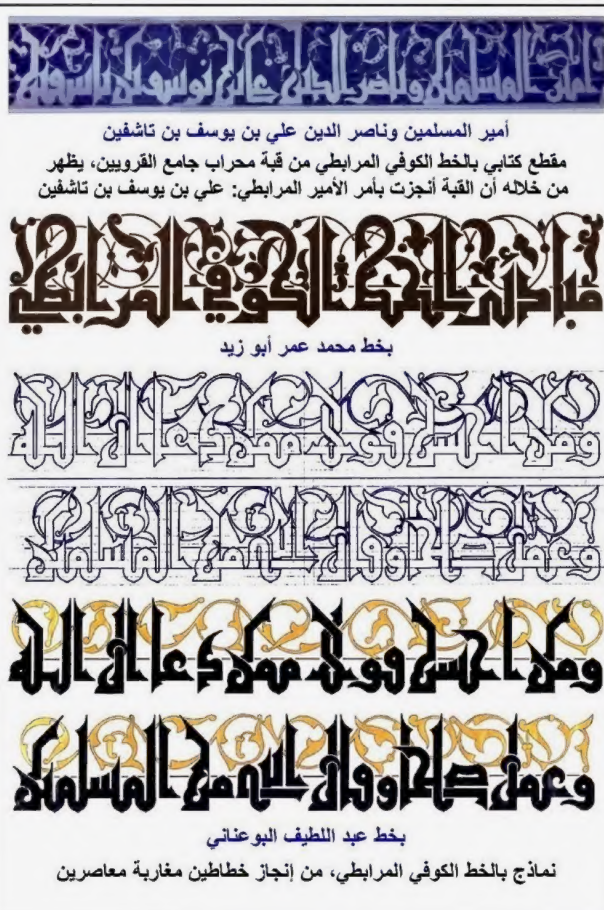 أمير المسلمين وناصر الدين علي بن يوسف بن تاشفين
أمير المسلمين وناصر الدين علي بن يوسف بن تاشفين
مقطع كتابي بالخط الكوفي المرابطي من قبة محراب جامع القرويين، يظهر
من خلاله أن القبة أنجزت بأمر الأمير المرابطي: علي بن يوسف بن تاشفين
مبادئ الخط الكوفي المرابطي
بخط محمد عمر أبو زيد
ومن احسن قولا ممن دعا الى الله
وعمل صلحا وقال انني من المسلمين
ومن احسن قولا ممن دعا الى الله
وعمل صلحا وقال انني من المسلمين
بخط عبد اللطيف البوعناني
نماذج بالخط الكوفي المرابطي، من إنجاز خطاطين مغاربة معاصرين